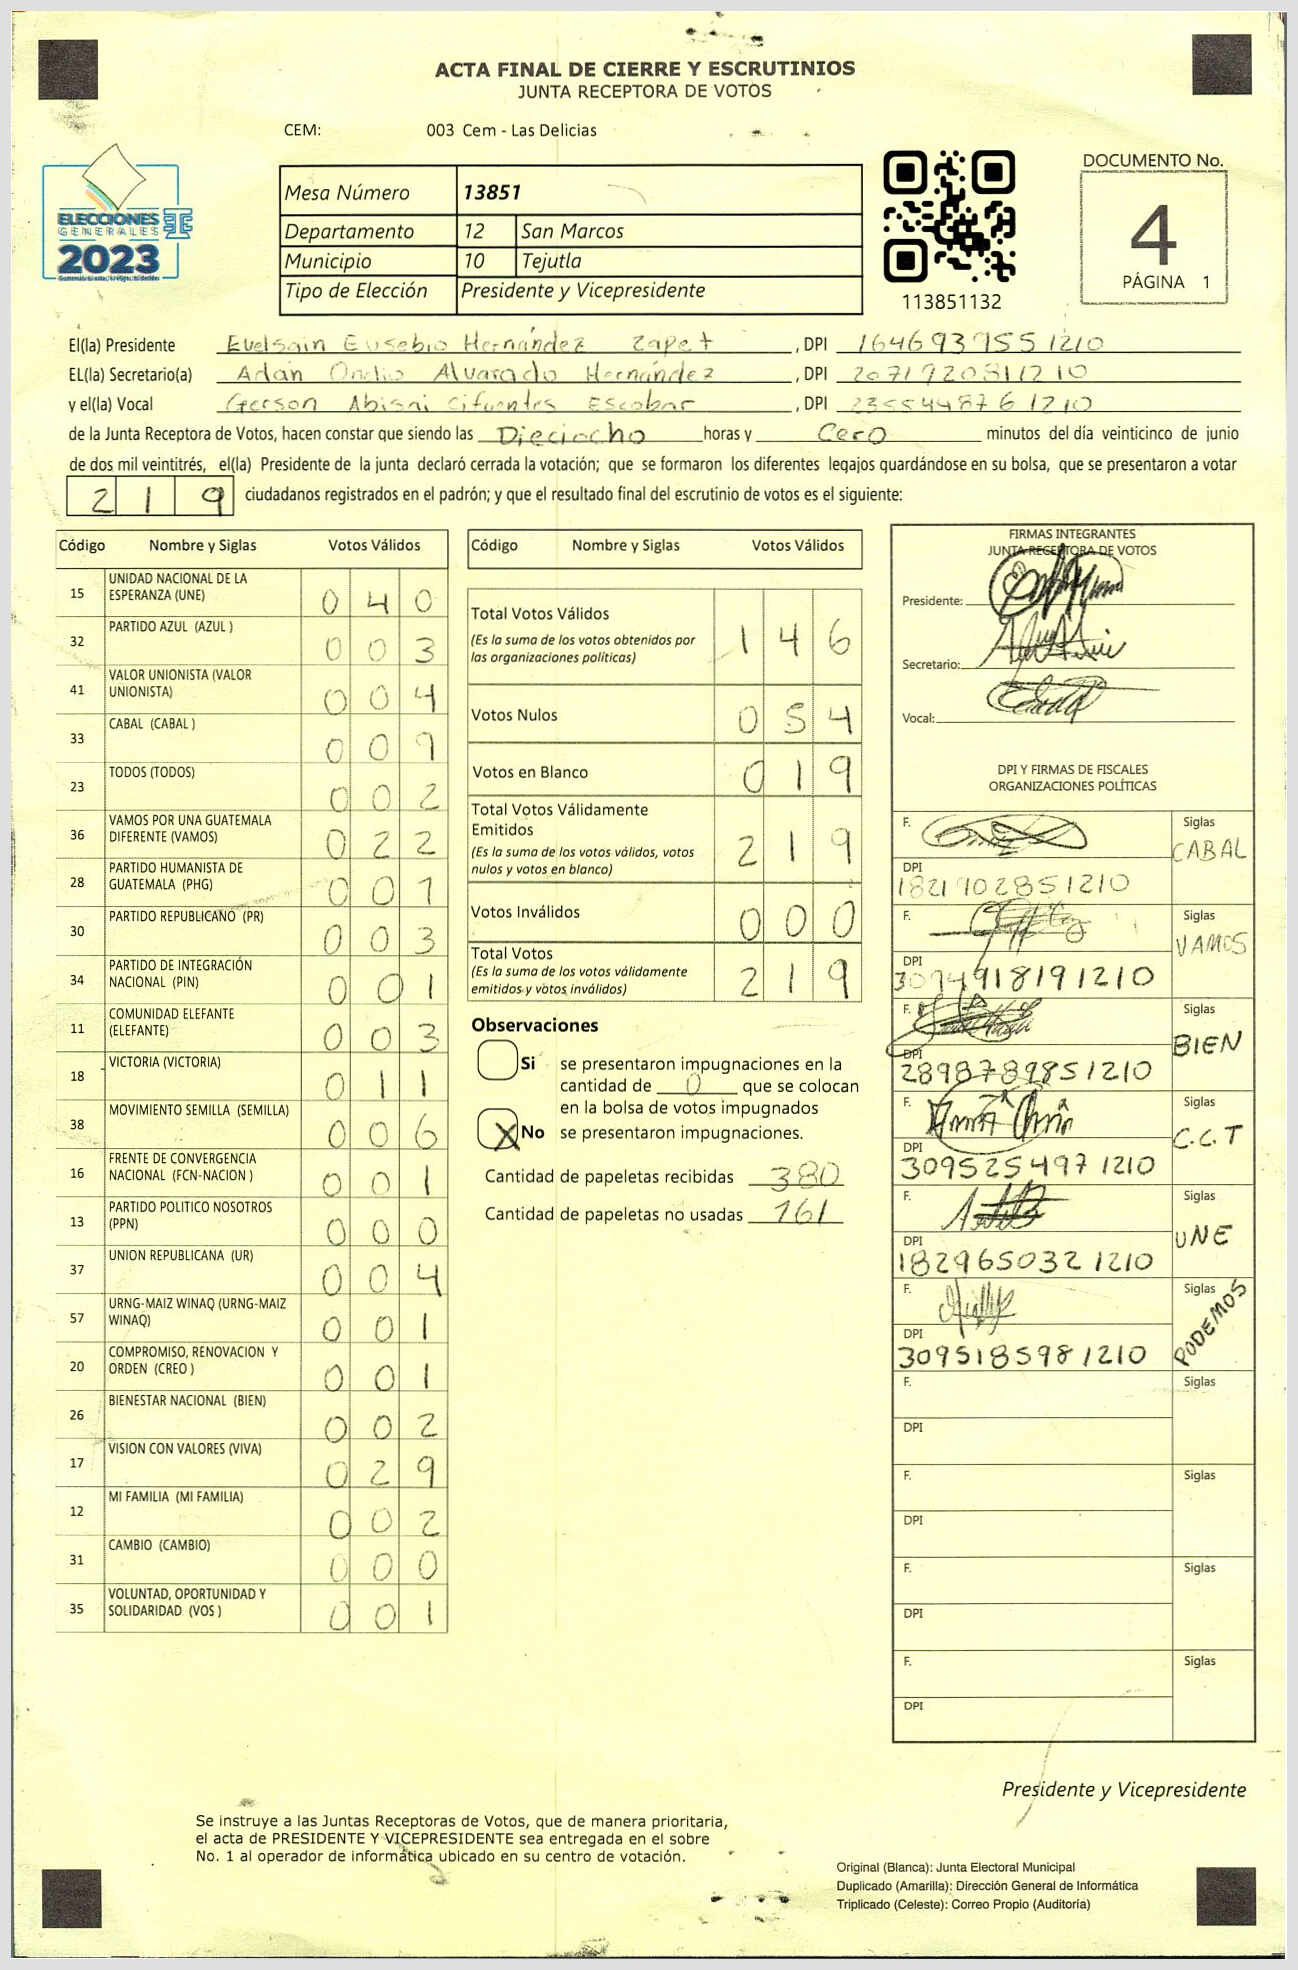 ACTA FINAL DE CIERRE Y ESCRUTINIOS
JUNTA RECEPTORA DE VOTOS
CEM: 003 Cem - Las Delicias
ELECCIONES
GENERALES
2023
Mesa Número 13851
Departamento 12 San Marcos
Municipio 10 Tejutla
Tipo de Elección Presidente y Vicepresidente
113851132
DOCUMENTO No.
4
PÁGINA 1
El(la) Presidente Evelsain Eusebio Hernández Zapet , DPI 1646939551210
EL(la) Secretario(a) Adán Ondio Alvarado Hernández , DPI 2071920811210
y el(la) Vocal Gerson Abisai Cifuentes Escobar , DPI 2355448761210
de la Junta Receptora de Votos, hacen constar que siendo las Dieciocho horas y Cero minutos del día veinticinco de junio
de dos mil veintitrés, el(la) Presidente de la junta declaró cerrada la votación; que se formaron los diferentes legajos guardándose en su bolsa, que se presentaron a votar
219 ciudadanos registrados en el padrón; y que el resultado final del escrutinio de votos es el siguiente:
Código Nombre y Siglas Votos Válidos
15 UNIDAD NACIONAL DE LA ESPERANZA (UNE) 040
32 PARTIDO AZUL (AZUL ) 003
41 VALOR UNIONISTA (VALOR UNIONISTA) 004
33 CABAL (CABAL ) 009
23 TODOS (TODOS) 002
36 VAMOS POR UNA GUATEMALA DIFERENTE (VAMOS) 022
28 PARTIDO HUMANISTA DE GUATEMALA (PHG) 001
30 PARTIDO REPUBLICANO (PR) 003
34 PARTIDO DE INTEGRACIÓN NACIONAL (PIN) 001
11 COMUNIDAD ELEFANTE (ELEFANTE) 003
18 VICTORIA (VICTORIA) 011
38 MOVIMIENTO SEMILLA (SEMILLA) 006
16 FRENTE DE CONVERGENCIA NACIONAL (FCN-NACION ) 001
13 PARTIDO POLITICO NOSOTROS (PPN) 000
37 UNION REPUBLICANA (UR) 004
57 URNG-MAIZ WINAQ (URNG-MAIZ WINAQ) 001
20 COMPROMISO, RENOVACION Y ORDEN (CREO ) 001
26 BIENESTAR NACIONAL (BIEN) 002
17 VISION CON VALORES (VIVA) 029
12 MI FAMILIA (MI FAMILIA) 002
31 CAMBIO (CAMBIO) 000
35 VOLUNTAD, OPORTUNIDAD Y SOLIDARIDAD (VOS ) 001
Código Nombre y Siglas Votos Válidos
Total Votos Válidos 146
(Es la suma de los votos obtenidos por
las organizaciones políticas)
Votos Nulos 054
Votos en Blanco 019
Total Votos Válidamente
Emitidos 219
(Es la suma de los votos válidos, votos
nulos y votos en blanco)
Votos Inválidos 000
Total Votos 219
(Es la suma de los votos válidamente
emitidos y votos inválidos)
Observaciones
Si se presentaron impugnaciones en la
cantidad de 0 que se colocan
en la bolsa de votos impugnados
X No se presentaron impugnaciones.
Cantidad de papeletas recibidas 380
Cantidad de papeletas no usadas 161
FIRMAS INTEGRANTES
JUNTA RECEPTORA DE VOTOS
Presidente:
Secretario:
Vocal:
DPI Y FIRMAS DE FISCALES
ORGANIZACIONES POLÍTICAS
F. Siglas CABAL
DPI 1821902851210
F. Siglas VAMOS
DPI 3094918191210
F. Siglas BIEN
DPI 2898789851210
F. Siglas C.C.T
DPI 3095254971210
F. Siglas UNE
DPI 1829650321210
F. Siglas PODEMOS
DPI 3095185981210
F. Siglas
DPI
F. Siglas
DPI
F. Siglas
DPI
F. Siglas
DPI
Presidente y Vicepresidente
Se instruye a las Juntas Receptoras de Votos, que de manera prioritaria,
el acta de PRESIDENTE Y VICEPRESIDENTE sea entregada en el sobre
No. 1 al operador de informática ubicado en su centro de votación.
Original (Blanca): Junta Electoral Municipal
Duplicado (Amarilla): Dirección General de Informática
Triplicado (Celeste): Correo Propio (Auditoría)